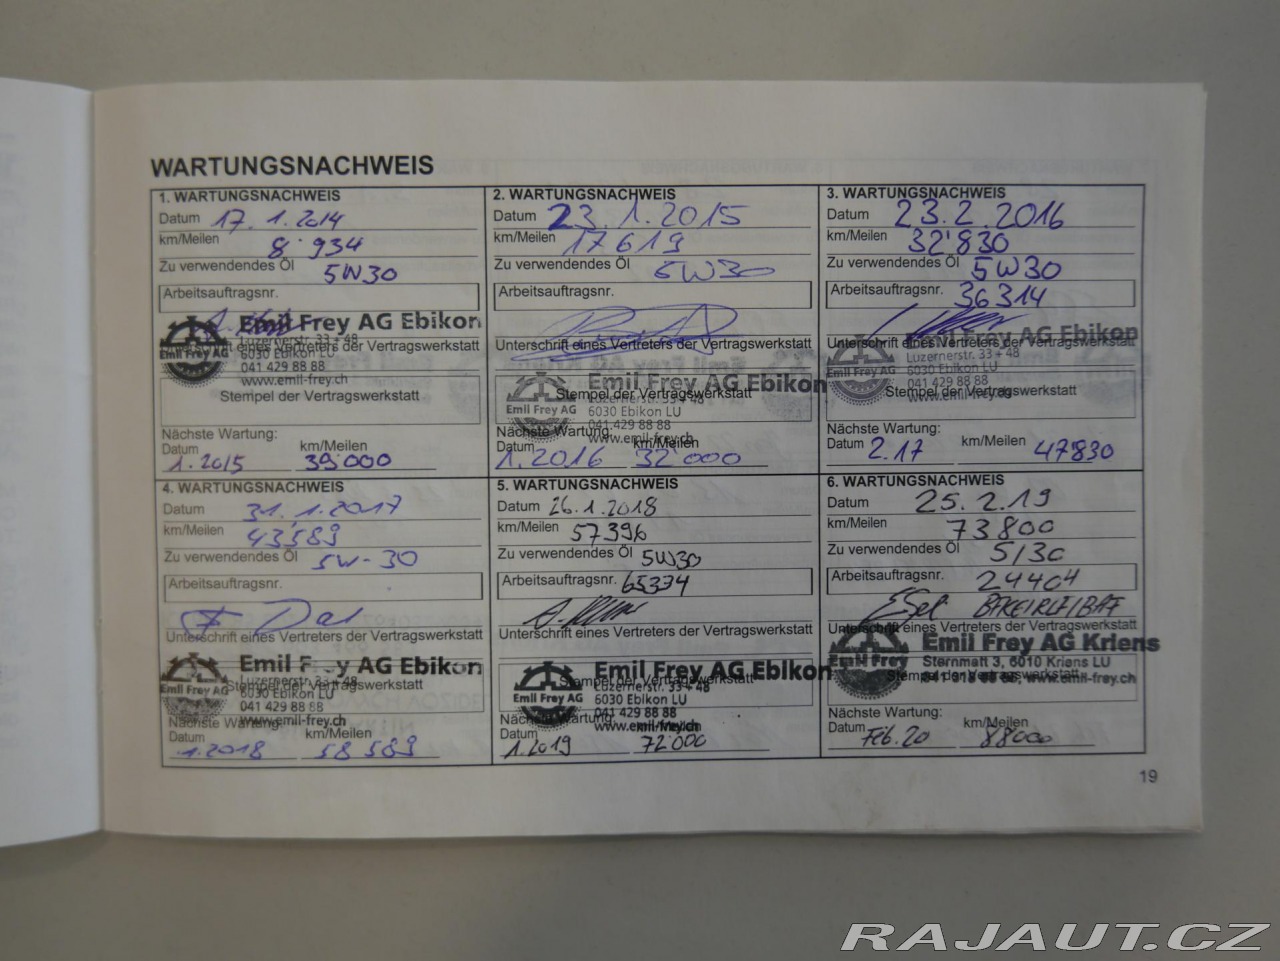 WARTUNGSNACHWEIS
1. WARTUNGSNACHWEIS
Datum 17.1.2014
km/Meilen 8'934
Zu verwendendes Öl 5W30
Arbeitsauftragsnr.
Emil Frey AG Ebikon
Luzernerstr. 33 + 48
Unterschrift eines Vertreters der Vertragswerkstatt
Emil Frey AG
6030 Ebikon LU
041 429 88 88
www.emil-frey.ch
Stempel der Vertragswerkstatt
Nächste Wartung:
Datum km/Meilen
1.2015 39'000
2. WARTUNGSNACHWEIS
Datum 23.1.2015
km/Meilen 17619
Zu verwendendes Öl 5W30
Arbeitsauftragsnr.
Unterschrift eines Vertreters der Vertragswerkstatt
Emil Frey AG Ebikon
Stempel der Vertragswerkstatt
Luzernerstr. 33 + 48
Emil Frey AG
6030 Ebikon LU
041 429 88 88
www.emil-frey.ch
Nächste Wartung:
Datum km/Meilen
1.2016 32'000
3. WARTUNGSNACHWEIS
Datum 23.2.2016
km/Meilen 32'830
Zu verwendendes Öl 5W30
Arbeitsauftragsnr. 36314
Emil Frey AG Ebikon
Unterschrift eines Vertreters der Vertragswerkstatt
Luzernerstr. 33 + 48
Emil Frey AG
6030 Ebikon LU
041 429 88 88
www.emil-frey.ch
Stempel der Vertragswerkstatt
Nächste Wartung:
Datum 2.17 km/Meilen 47'830
4. WARTUNGSNACHWEIS
Datum 31.1.2017
km/Meilen 43'589
Zu verwendendes Öl 5W-30
Arbeitsauftragsnr.
Unterschrift eines Vertreters der Vertragswerkstatt
Emil Frey AG Ebikon
Luzernerstr. 33 + 48
Stempel der Vertragswerkstatt
Emil Frey AG
6030 Ebikon LU
041 429 88 88
www.emil-frey.ch
Nächste Wartung:
Datum km/Meilen
1.2018 58'589
5. WARTUNGSNACHWEIS
Datum 26.1.2018
km/Meilen 57396
Zu verwendendes Öl 5W30
Arbeitsauftragsnr. 65374
Unterschrift eines Vertreters der Vertragswerkstatt
Emil Frey AG Ebikon
Stempel der Vertragswerkstatt
Luzernerstr. 33 + 48
Emil Frey AG
6030 Ebikon LU
041 429 88 88
www.emil-frey.ch
Nächste Wartung:
Datum km/Meilen
1.2019 72'000
6. WARTUNGSNACHWEIS
Datum 25.2.19
km/Meilen 73800
Zu verwendendes Öl 5/30
Arbeitsauftragsnr. 24404
Unterschrift eines Vertreters der Vertragswerkstatt
Emil Frey AG Kriens
Emil Frey
Sternmatt 3, 6010 Kriens LU
www.emil-frey.ch
Stempel der Vertragswerkstatt
Nächste Wartung:
Datum Feb.20 km/Meilen 88000
19
RAJAUT.CZ